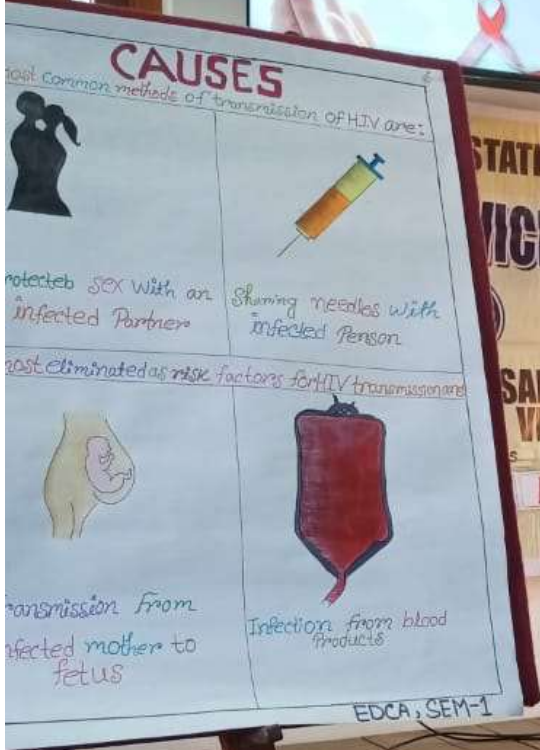 CAUSES
ost common methods of transmission of HIV are:
rotected sex with an
infected Partner
Sharing needles with
infected Person
ost eliminated as risk factors for HIV transmission are
ransmission from
nfected mother to
fetus
Infection from blood
Products
EDCA, SEM-1
STAT
VIC
SA
V